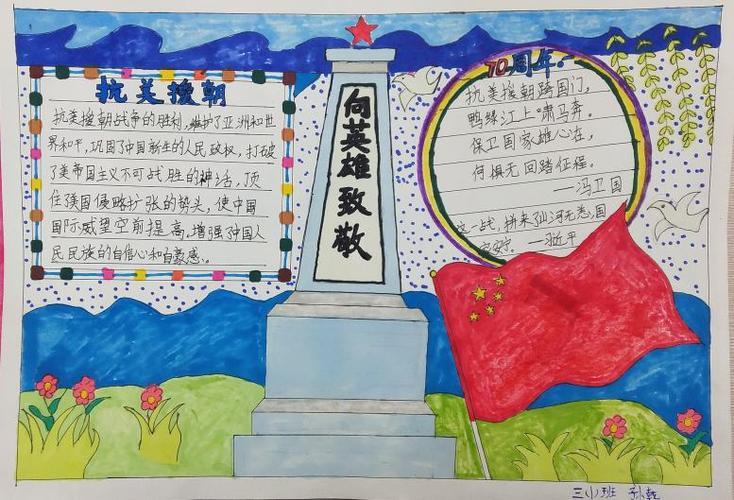 抗美援朝
抗美援朝战争的胜利,维护了亚洲和世
界和平,巩固了中国新生的人民政权,打破
了美帝国主义不可战胜的神话,顶
住了美国侵略扩张的势头,使中国
国际威望空前提高,增强了中国人
民民族的自信心和自豪感。
向英雄致敬
70周年
抗美援朝跨国门,
鸭绿江上啸马奔。
保卫国家雄心在,
何惧无回踏征程。
——冯卫国
这一战,拼来了山河无恙,国
家安宁。——习近平
三(1)班 孙乾